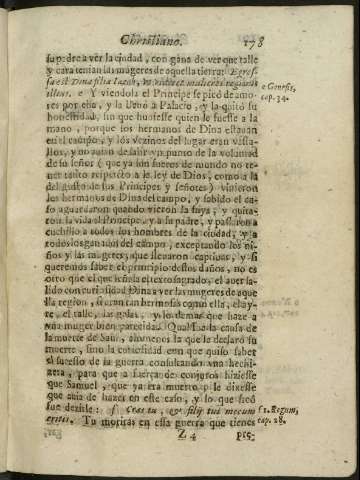 Christiano. 178
su padre a ver la ciudad, con gana de ver que talle
y cara tenian las mugeres de aquella tierra: Egres-
sa est Dina filia Iacob, vt videret mulieres regionis
illius. e Y viendola el Principe se picò de amo-
e Genesis,
cap. 34.
res por ella, y la lleuò a Palacio, y la quitò su
honestidad, sin que huuiesse quien le fuesse a la
mano, porque los hermanos de Dina estauan
en el campo, y los vezinos del lugar eran vassa-
llos, y no auian de salir vn punto de la voluntad
de su señor (que ya son fueros de mundo no te-
ner tanto respecto a la ley de Dios, como a la
del gusto de sus Principes y señores) vinieron
los hermanos de Dina del campo, y sabido el ca-
so aguardaron quando vieron la suya, y quita-
ron la vida al Principe, y a su padre, y passaron a
cuchillo a todos los hombres de la ciudad, y a
todos los ganados del campo, exceptando los ni-
ños y las mugeres, que lleuaron captiuas, y si
queremos saber el principio destos daños, no es
otro que el que señala el texto sagrado, el auer sa-
lido con curiosidad Dina a ver las mugeres de aque
lla region, si eran tan hermosas como ella, el ay-
re, el talle, las galas, y lo demas que haze a
vna muger bien parecida. Qual fue la causa de
la muerte de Saul, alomenos la que le declarò su
muerte, sino la curiosidad con que quiso saber
el sucesso de la guerra consultando vna hechi-
zera, para que a fuerça de conjuros hiziesse
que Samuel, que ya era muerto, le dixesse
que auia de hazer en este caso, y lo que sacò
fue dezirle: f Cras tu, & filij tui mecum
f 1. Regum,
cap. 28.
eritis. Tu moriras en essa guerra que tienes
Z 4 pre-